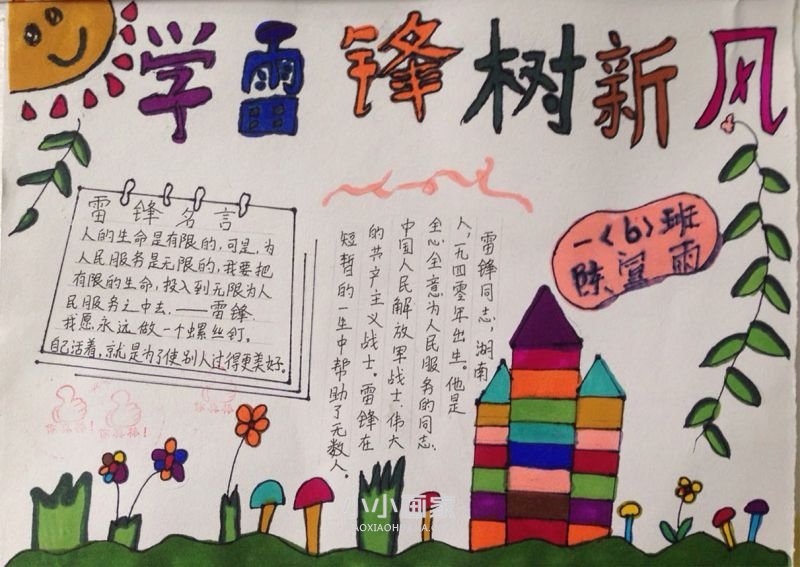 学雷锋树新风
雷锋名言
人的生命是有限的,可是,为
人民服务是无限的,我要把
有限的生命,投入到无限为人
民服务之中去。——雷锋
我愿永远做一个螺丝钉。
自己活着,就是为了使别人过得更美好。
雷锋同志,湖南
人,一九四零年出生。他是
全心全意为人民服务的同志,
中国人民解放军战士伟大
的共产主义战士。雷锋在
短暂的一生中帮助了无数人。
一〈6〉班
陈萱雨
你真棒!
你真棒!
小画家